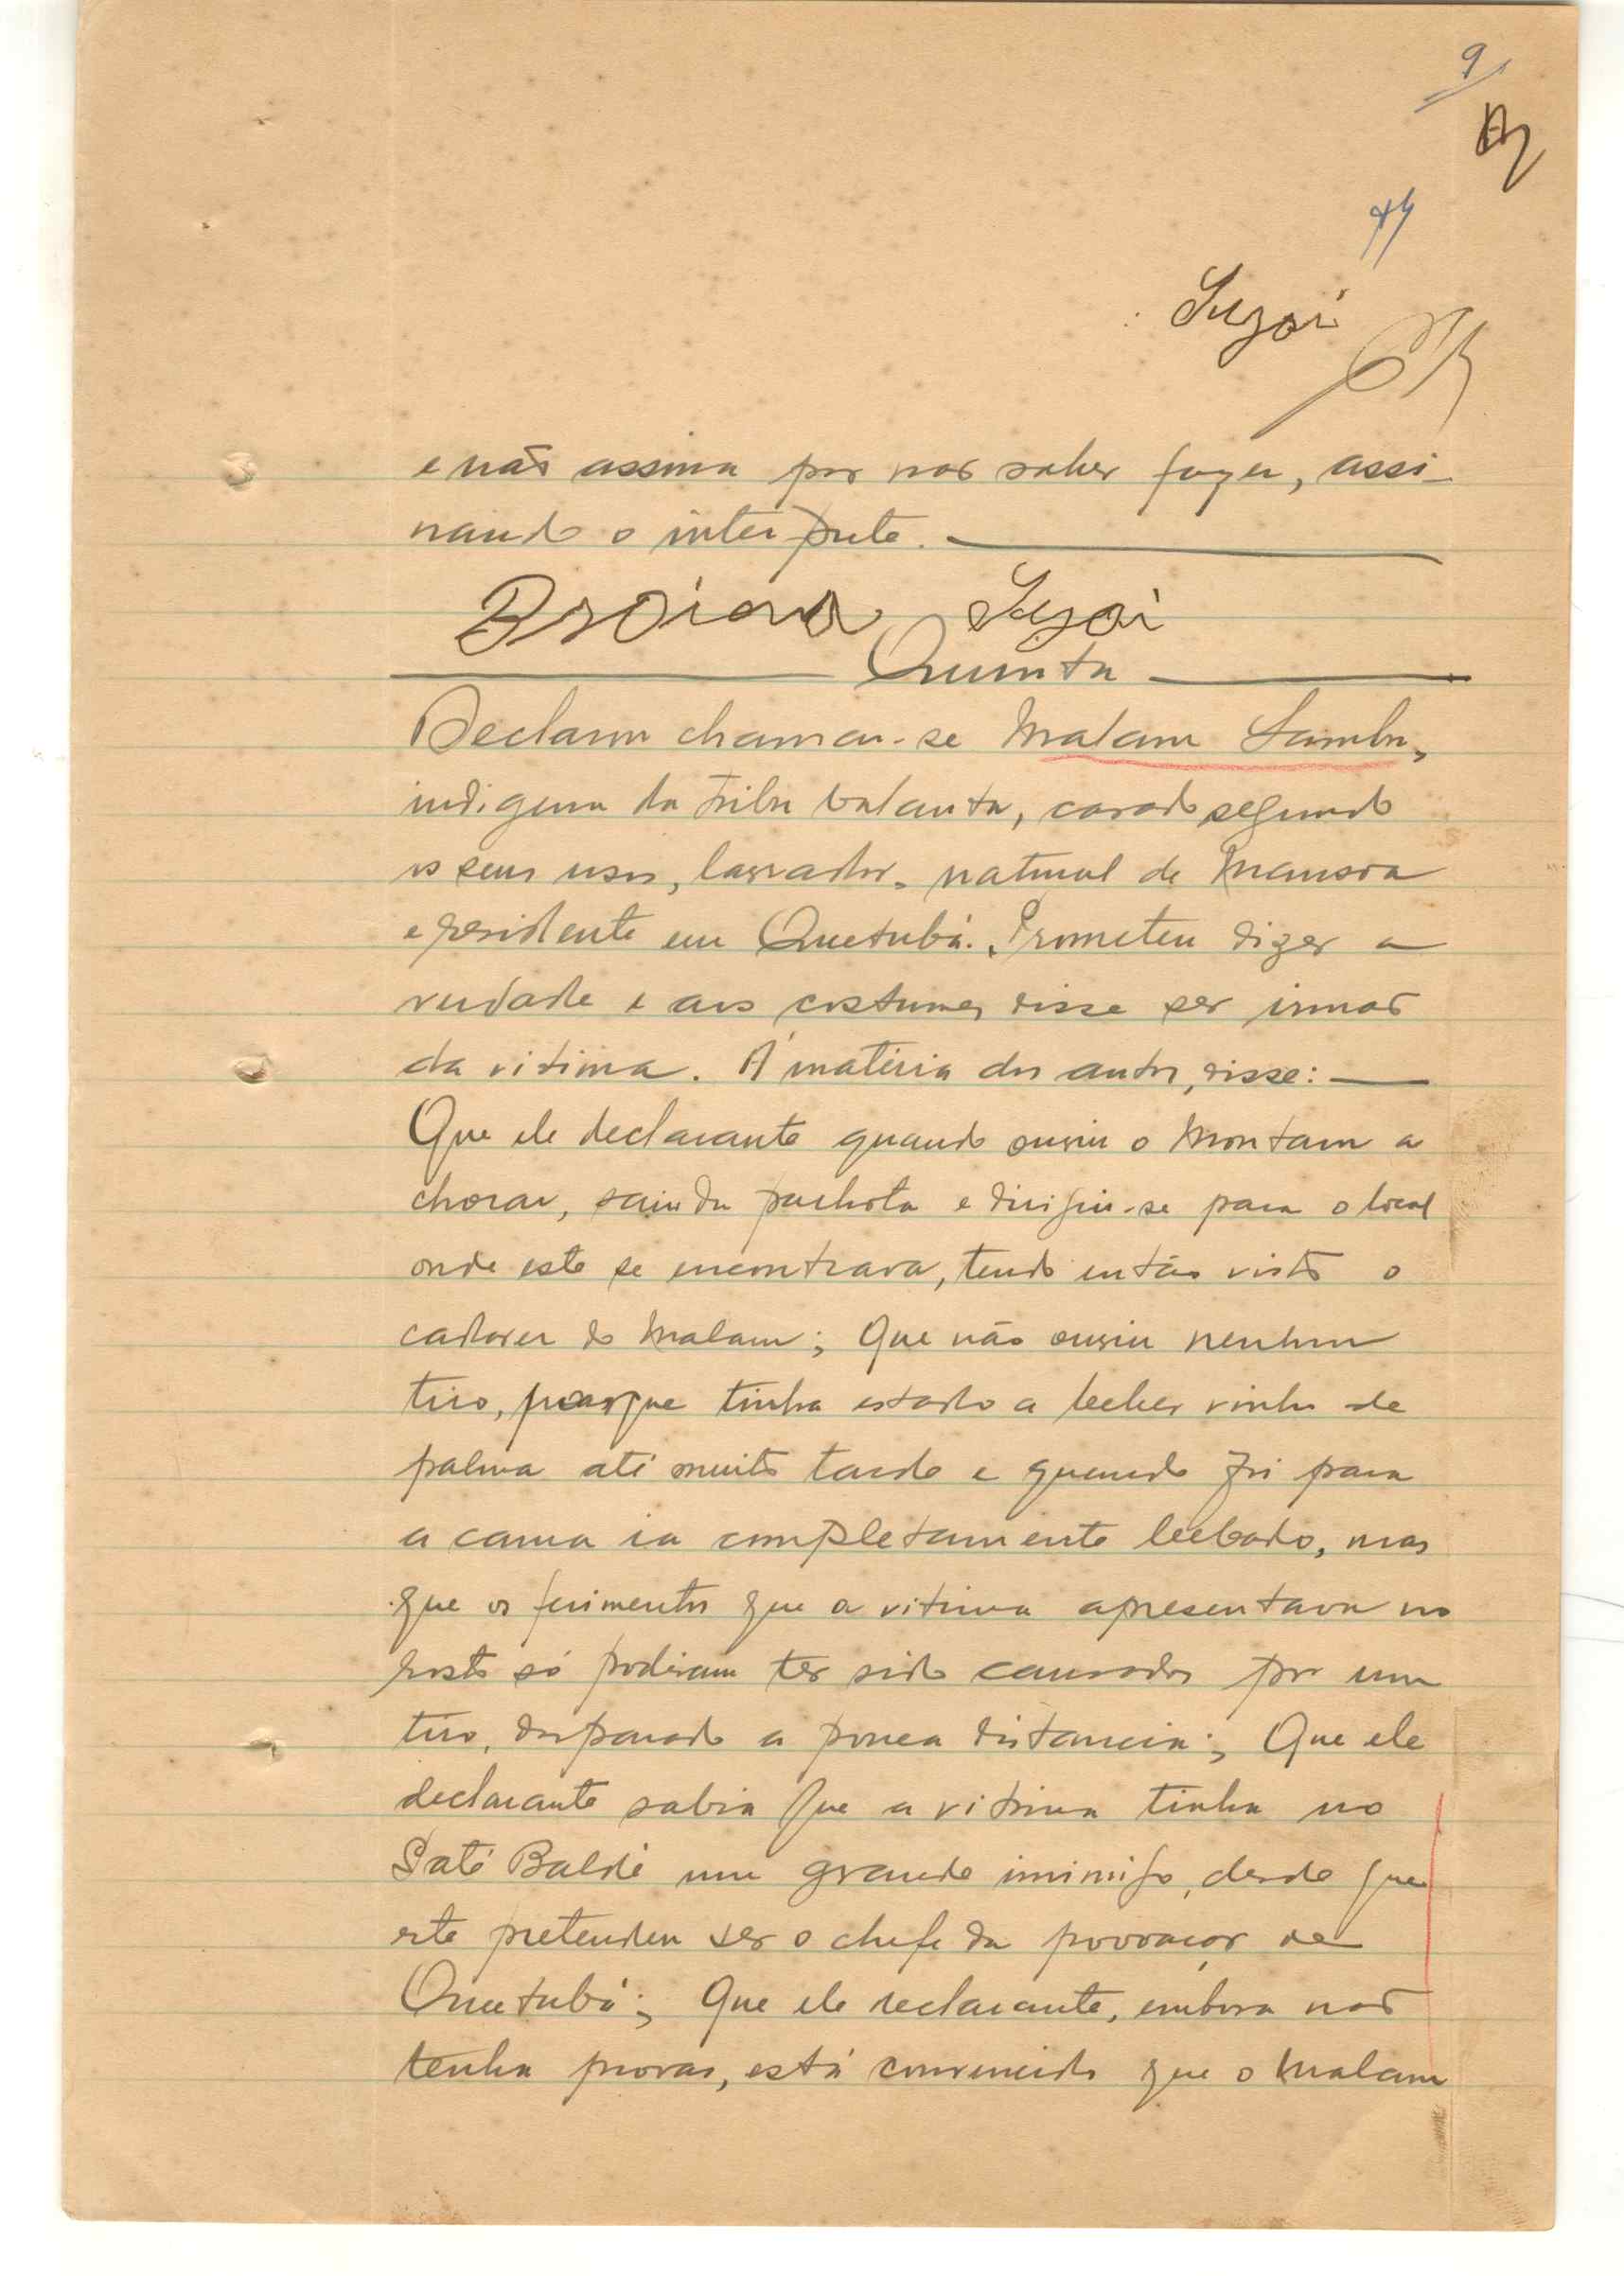 9
e não assina por não saber fazer, assi-
nando o interprete.
Quinta
Declarou chamar-se Malam Sambu,
indigena da tribu balanta, casado segundo
os seus usos, lavrador, natural de Mansoa
e residente em Quetubá. Prometeu dizer a
verdade e aos costumes disse ser irmão
da vitima. Á matéria dos autos, disse:
Que ele declarante quando ouviu o Montam a
chorar, saiu da palhota e dirigiu-se para o local
onde este se encontrava, tendo então visto o
cadaver do Malam; Que não ouviu nenhum
tiro, porque tinha estado a beber vinho de
palma até muito tarde e quando foi para
a cama ia completamente bebado, mas
que os ferimentos que a vitima apresentava no
rosto só podiam ter sido causados por um
tiro, disparado a pouca distancia; Que ele
declarante sabia que a vitima tinha no
Saté Baldé um grande inimigo, desde que
este pretendeu ser o chefe da povoação de
Quetubá; Que ele declarante, embora não
tenha provas, está convencido que o Malam